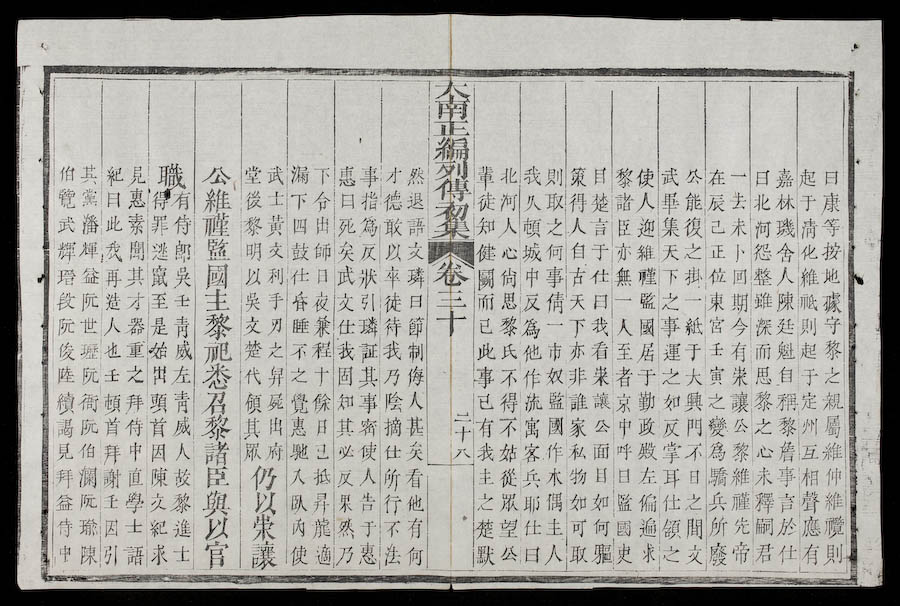 曰康等按地據守黎之親屬維伸維禶則
起于清化維祗則起于定州互相聲應有
嘉林璣舍人陳廷魁自稱黎詹事言於仕
曰北河怨整雖深而思黎之心未釋嗣君
一去未卜回期今有崇讓公黎維先帝
在辰已正位東宮壬寅之變為驕兵所廢
公能復之掛一紙于大興門不日之間文
武畢集天下之事運之如反掌耳仕領之
使人迎維監國居于勤政殿左偏遍求
黎諸臣亦無一人至者京中呼曰監國吏
目楚言于仕曰我看崇讓公面目如何驅
策得人自古天下亦非誰家私物如可取
則取之何事倩一市奴監國作木偶主人
我久頓城中反為他作流寓客兵耶仕曰
北河人心尚思黎氏不得不姑從眾望公
輩徒知健鬬而已此事已有我主之楚默
大南正編列傳初集 卷三十 二十八
然退語文璘曰節制侮人甚矣看他有何
才德敢以卒徒待我乃陰摘仕所行不法
事指為反狀引璘証其事密使人告于惠
惠曰死矣武文仕我固知其必反果然乃
下令出師日夜兼程十餘日已抵昇龍適
漏下四鼓仕昏睡不之覺惠馳入臥內使
武士黃文利手刃之舁屍出府
堂後黎明以吳文楚代領其眾仍以崇讓
公維監國主黎祀悉召黎諸臣與以官
職有侍郎吳壬青威左青威人故黎進士
得罪逃竄至是始出頭首因陳文紀求
見惠素聞其才器重之拜侍中直學士語
紀曰此我再造人也壬頓首拜謝壬因引
其黨潘輝益阮世瓑阮衙阮伯瀾阮瑜陳
伯覽武輝瑨段阮俊陸續謁見拜益侍中